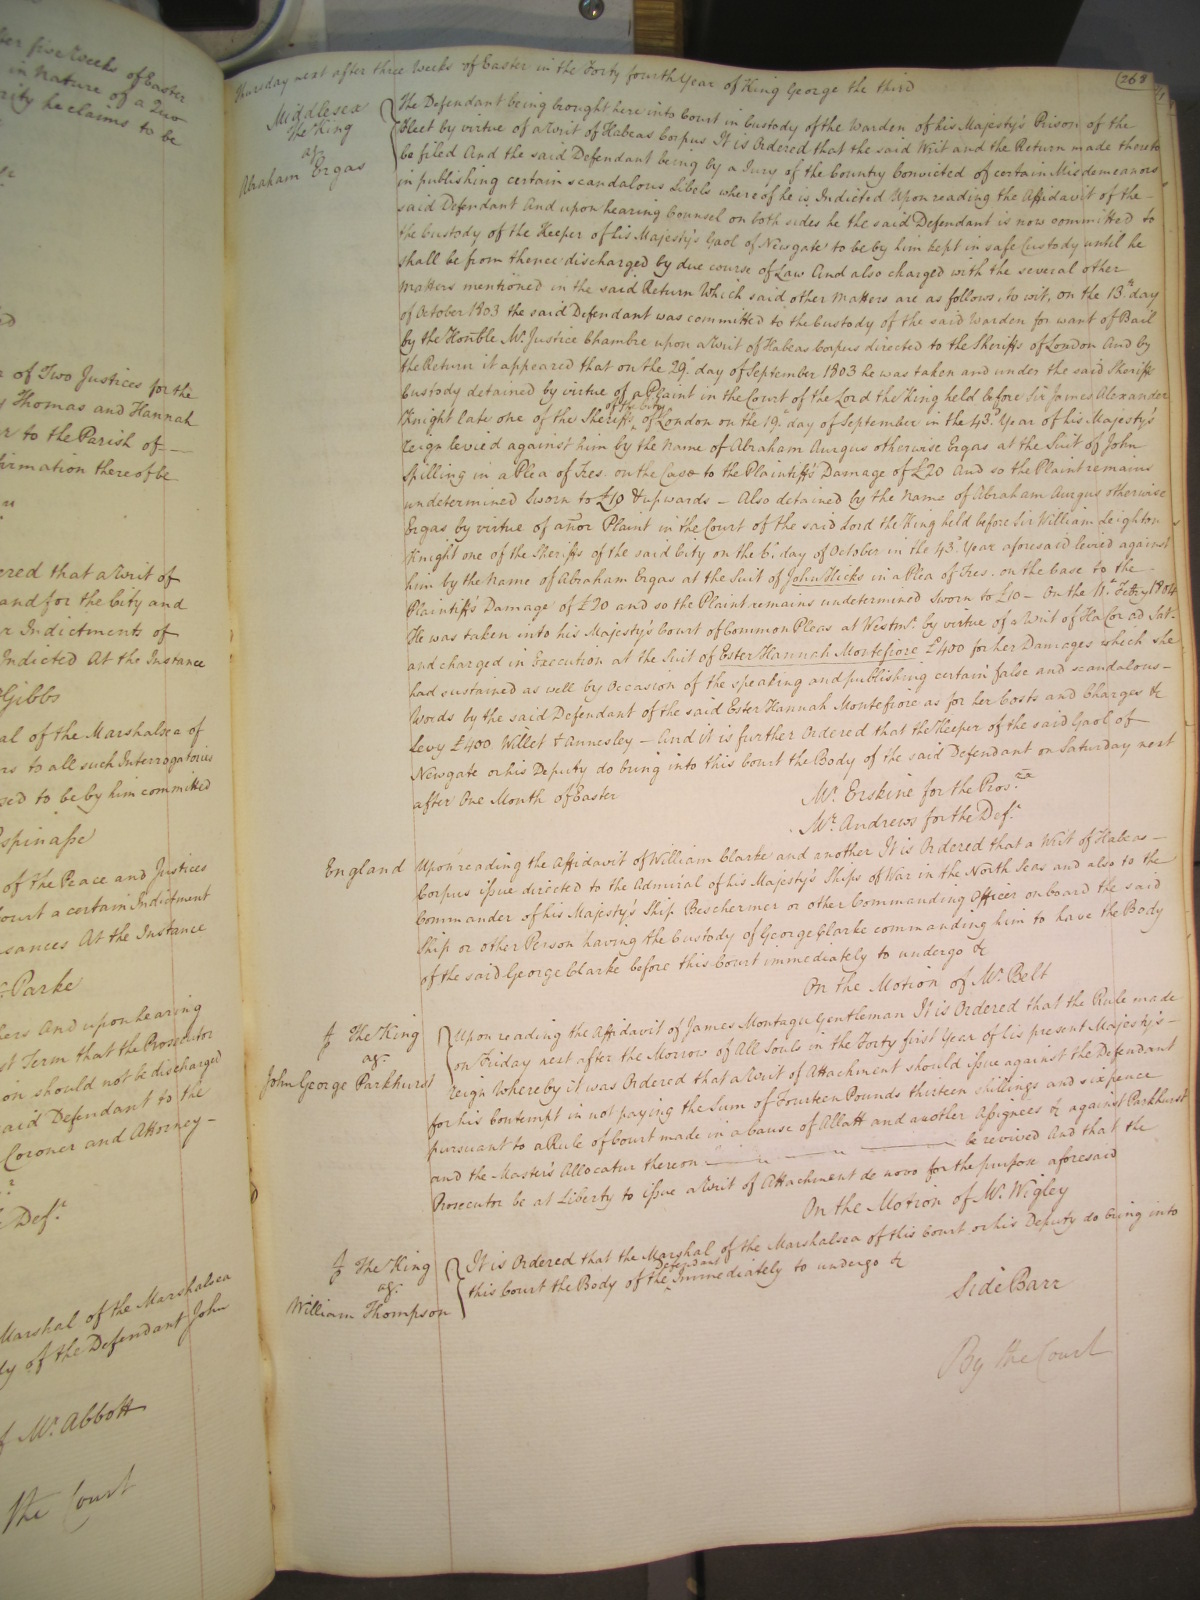 ber five Weeks of Easter
in Nature of a Quo
rity he claims to be
n of Two Justices for the
y Thomas and Hannah
r to the Parish of
firmation thereof be
ered that a Writ of
and for the City and
r Indictments of
Indicted At the Instance
Gibbs
al of the Marshalsea of
rs to all such Interrogatories
sed to be by him committed
Espinasse
of the Peace and Justices
Court a certain Indictment
sances At the Instance
Parke
ders And upon hearing
st Term that the Prosecutor
on should not be discharged
said Defendant to the
Coroner and Attorney -
Def.t
Marshal of the Marshalsea
dy of the Defendant John
f Mr. Abbott
The Court
Thursday next after three Weeks of Easter in the Forty fourth Year of King George the third
268
Middlesex
The King
ag.t
Abraham Ergas
The Defendant being brought here into Court in Custody of the Warden of his Majesty's Prison of the
Fleet by virtue of a Writ of Habeas Corpus It is Ordered that the said Writ and the Return made thereto
be filed And the said Defendant being by a Jury of the Country Convicted of certain Misdemeanors
in publishing certain scandalous Libels whereof he is Indicted Upon reading the Affidavit of the -
said Defendant And upon hearing Counsel on both sides he the said Defendant is now committed to
the Custody of the Keeper of his Majesty's Gaol of Newgate to be by him kept in safe Custody until he
shall be from thence discharged by due course of Law And also charged with the several other
matters mentioned in the said Return Which said other matters are as follows, to wit, on the 13th day
of October 1803 the said Defendant was committed to the Custody of the said Warden for want of Bail
by the Honble Mr. Justice Chambre upon a Writ of Habeas Corpus directed to the Sheriffs of London And by
the Return it appeared that on the 29th day of September 1803 he was taken and under the said Sheriffs
Custody detained by virtue of a Plaint in the Court of the Lord the King held before Sir James Alexander
Knight late one of the Sheriffs of the City of London on the 19th day of September in the 43d Year of his Majesty's
reign levied against him by the Name of Abraham Aurgus otherwise Ergas at the Suit of John
Spilling in a Plea of Tres. on the Case to the Plaintiff's Damage of £20 And so the Plaint remains
undetermined Sworn to £10 & upwards - Also detained by the Name of Abraham Aurgus otherwise
Ergas by virtue of anor Plaint in the Court of the said Lord the King held before Sir William Leighton
Knight one of the Sheriffs of the said City on the 6th day of October in the 43d Year aforesaid levied against
him by the Name of Abraham Ergas at the Suit of John Hicks in a Plea of Tres. on the Case to the
Plaintiff's Damage of £20 and so the Plaint remains undetermined Sworn to £10 - On the 11th Febry 1804
He was taken into his Majesty's Court of Common Pleas at Westmr. by virtue of a Writ of Ha Cor ad Sat.
and charged in Execution at the Suit of Ester Hannah Montefiore £400 for her Damages which she
had sustained as well by Occasion of the speaking and publishing certain false and scandalous -
Words by the said Defendant of the said Ester Hannah Montefiore as for her Costs and Charges &c
Levy £400 Willet & Annesley - And it is further Ordered that the Keeper of the said Gaol of
Newgate or his Deputy do bring into this Court the Body of the said Defendant on Saturday next
after One Month of Easter
Mr. Erskine for the Pros.
Mr. Andrews for the Def.t
England
Upon reading the Affidavit of William Clarke and another It is Ordered that a Writ of Habeas -
Corpus issue directed to the Admiral of his Majesty's Ships of War in the North Seas and also to the
Commander of his Majesty's Ship Beschermer or other Commanding Officer on board the said
Ship or other Person having the Custody of George Clarke commanding him to have the Body
of the said George Clarke before this Court immediately to undergo &c
On the Motion of Mr. Belt
The King
ag.t
John George Parkhurst
Upon reading the Affidavit of James Montagu Gentleman It is Ordered that the Rule made
on Friday next after the Morrow of All Souls in the Forty first Year of his present Majesty's -
reign Whereby it was Ordered that a Writ of Attachment should issue against the Defendant
for his Contempt in not paying the Sum of Fourteen Pounds thirteen shillings and sixpence
pursuant to a Rule of Court made in a Cause of Allatt and another Assignees &c against Parkhurst
and the Master's Allocatur thereon be revived And that the
Prosecutor be at Liberty to issue a Writ of Attachment de novo for the purpose aforesaid
On the Motion of Mr. Wigley
The King
ag.t
William Thompson
It is Ordered that the Marshal of the Marshalsea of this Court or his Deputy do bring into
this Court the Body of the Defendant Immediately to undergo &c
Side Barr
By the Court